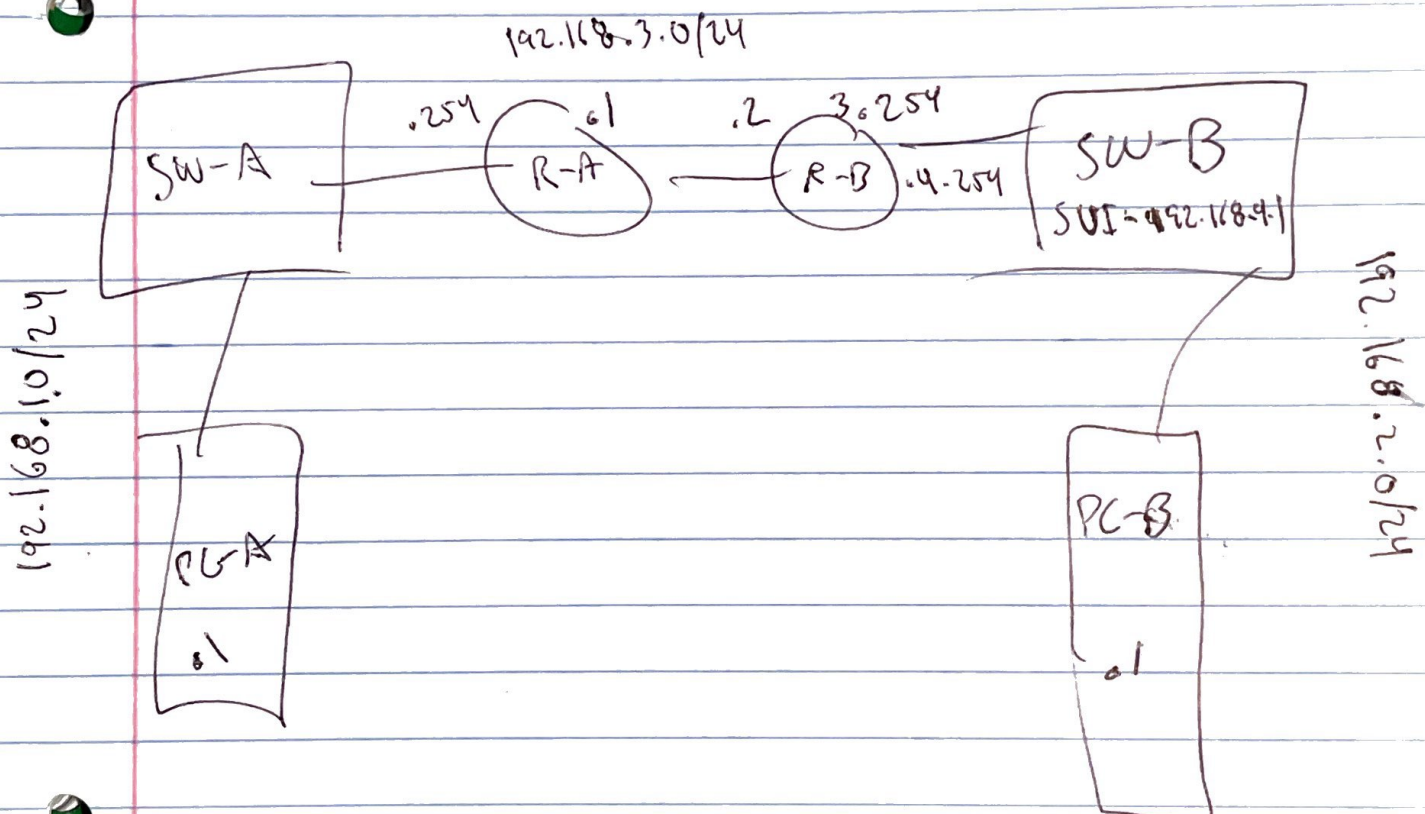 192.168.3.0/24
.254
.1
.2
3.254
SW-A
R-A
R-B
.4.254
SW-B
SVI-192.168.4.1
192.168.1.0/24
192.168.2.0/24
PC-A
.1
PC-B
.1